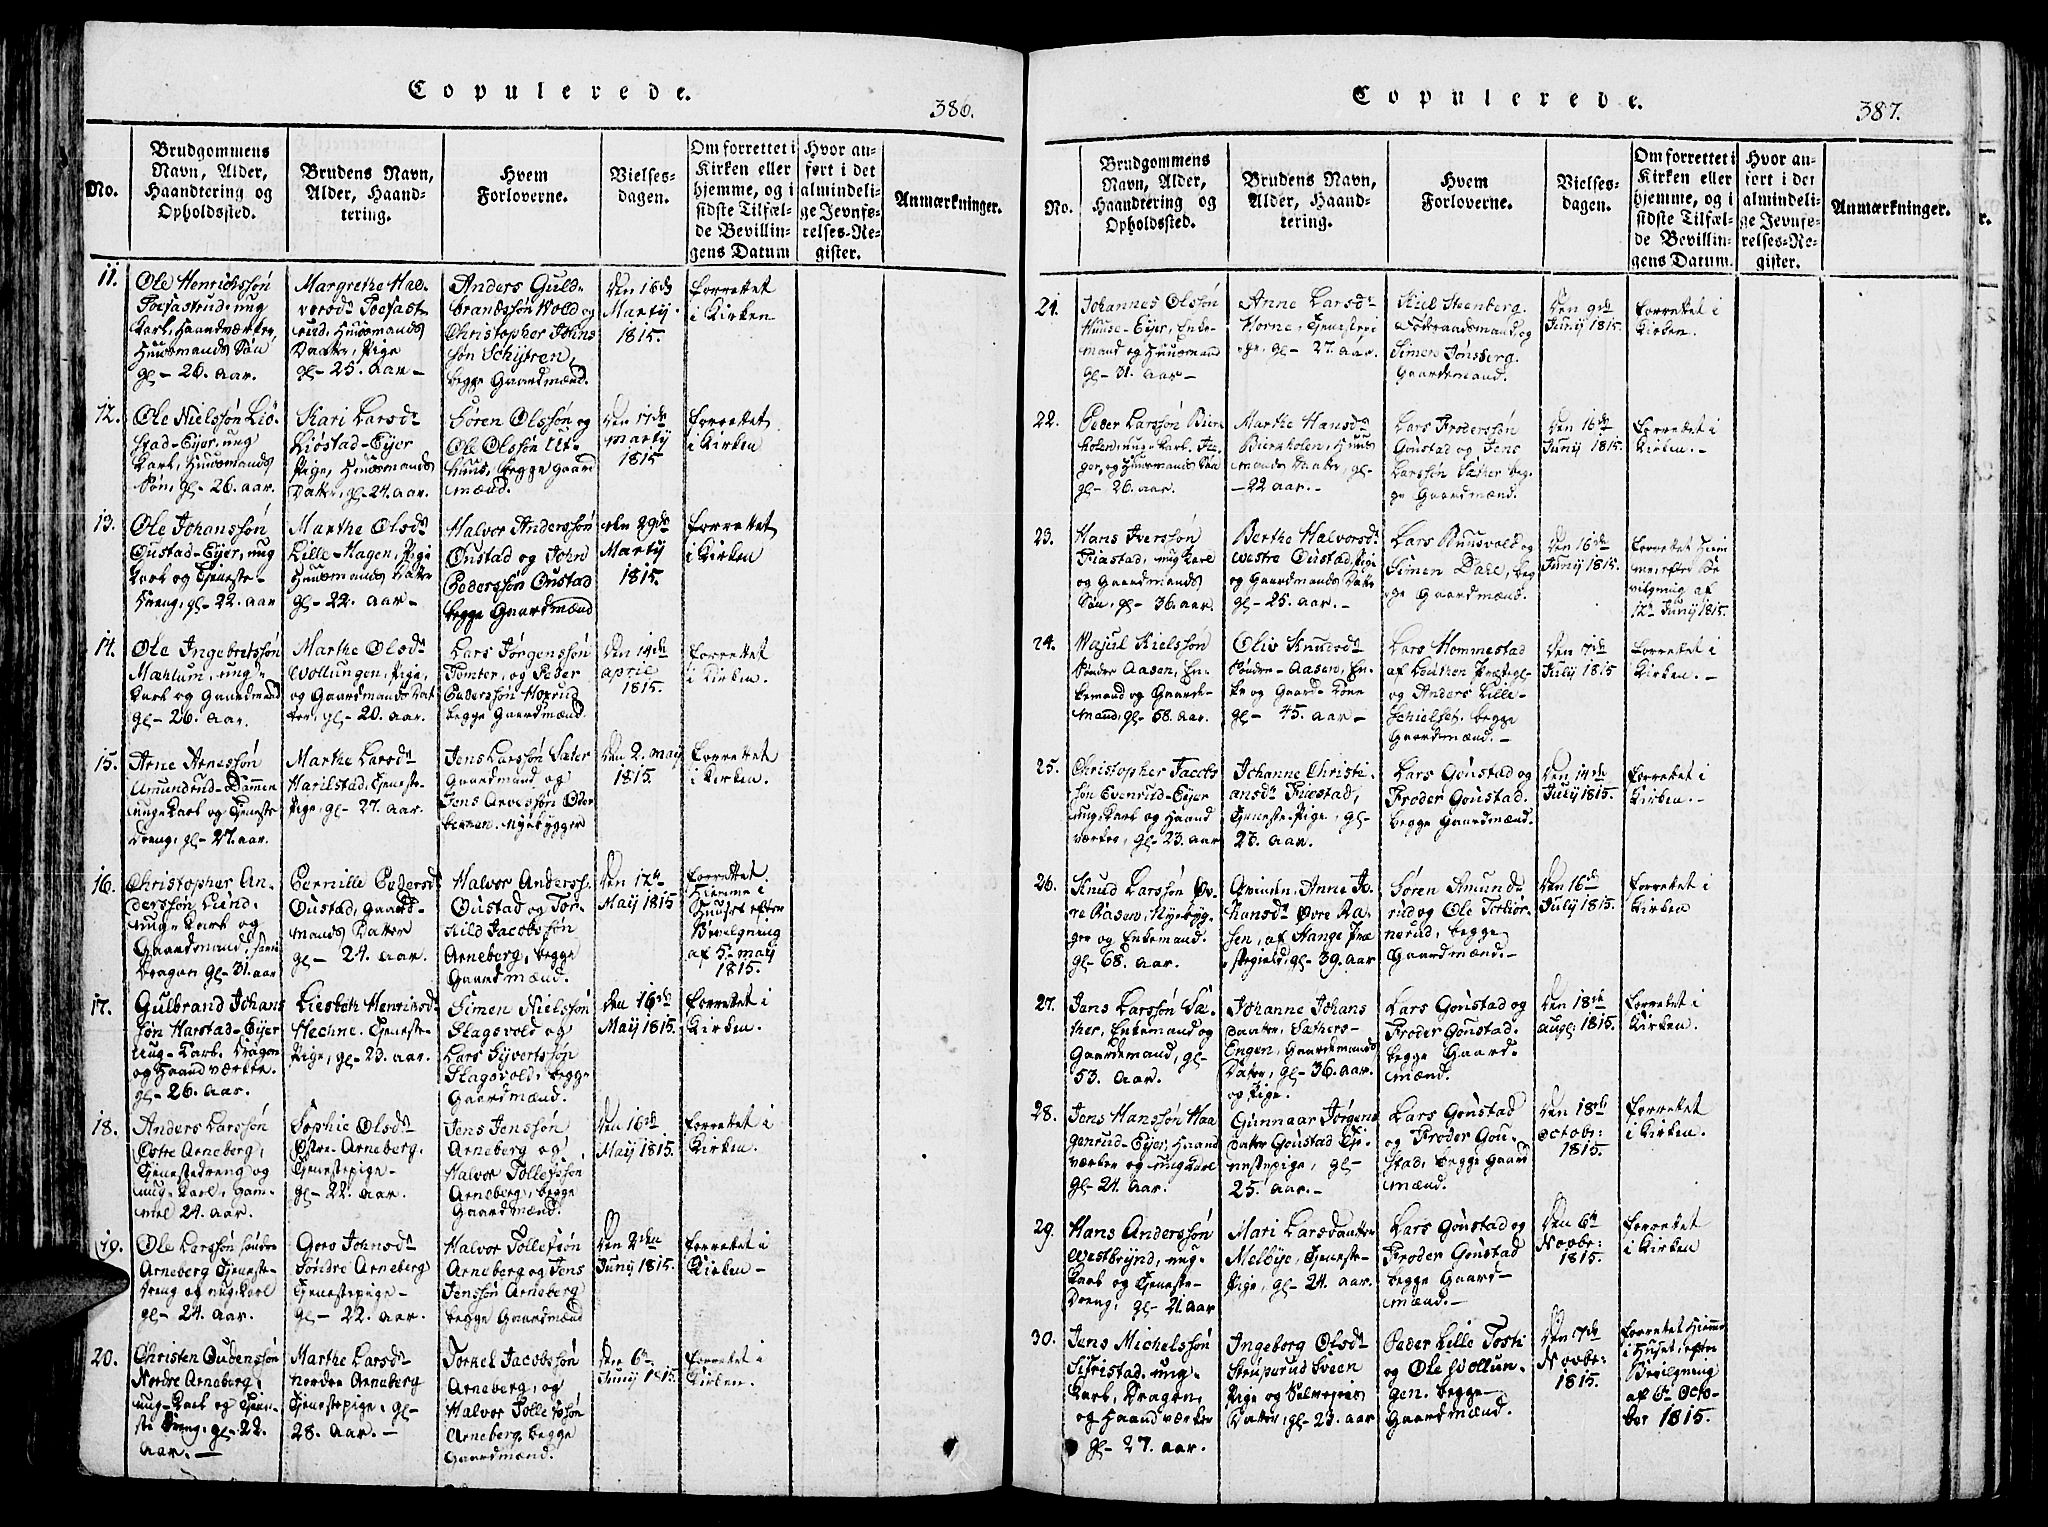 Copulerede.
386.
No.
Brudgommens
Navn, Alder,
Haandtering og
Opholdssted.
Brudens Navn,
Alder, Haand-
tering.
Hvem
Forloverne.
Vielses-
dagen.
Om forrettet i
Kirken eller
hjemme, og i
sidste Tilfæl-
de Bevillin-
gens Datum
Hvor an-
ført i det
almindeli-
ge Jevnfø-
relses-Re-
gister.
Anmærkninger.
11.
Ole Henrichssøn
ung
Karl, Haandværker,
Huusmands Søn
gl- 26. aar.
Margrethe Hal-
vorsdr
Huusmands
Datter, Pige
gl- 25. aar-
Anders Guld-
brandssøn Wold og
Christopher Johns
søn Schytren,
begge Gaardmænd.
Den 16de
Marty
1815.
Forrettet
i Kirken
12.
Ole Nielssøn Liø-
stad-Eyer, ung
Karl, Huusmands
Søn, gl- 26. aar.
Kari Larsdr
Liøstad-Eyer
Pige, Huusmands
Datter, gl- 24. aar.
Søren Olssøn og
Ole Olssøn Ut-
huus, begge Gaard
mænd.
Den 17de
Marty
1815
Forrettet
i Kirken
13.
Ole Johanssøn
Oustad-Eyer, ung
Karl og Tjeneste-
Dreng, gl- 22. aar
Marthe Olsdr
Lille-Hagen, Pige
Huusmands Datter
gl- 22. aar-
Halvor Anderssøn
Oustad og John
Pederssøn Oustad
begge Gaardmænd
Den 29de
Marty
1815.
Forrettet
i Kirken
14.
Ole Ingebretssøn
Mæhlum, ung-
Karl og Gaardmand
gl- 26. aar.
Marthe Olsdr
Wollungen, Pige,
og Gaardmands Dat
ter, gl- 20. aar.
Lars Jørgenssøn
Tomter, og Peder
Pederssøn
begge Gaardmænd.
Den 14de
april
1815.
Forrettet
i Kirken.
15.
Arne Arnessøn
Amundrud-Dammen
unge Karl og Tjeneste
Dreng, gl- 27. aar.
Marthe Larsdr
Harilstad, Tjeneste-
Pige, gl- 27. aar.
Jens Larssøn Sæter
Gaardmand og
Jens Arvessøn
Nyebygger
Den 2. may
1815.
Forrettet
i Kirken.
16.
Christopher An-
derssøn Lund,
unge Karl og
Gaardmand,
Dragon gl- 31. aar
Pernille Pedersdr
Oustad, Gaard-
mands Datter
gl- 24. aar.
Halvor Anderss.
Oustad og Tor-
kild Jacobssøn
Arneberg, begge
Gaardmænd.
Den 12te
May 1815
Forrettet
Hiemme i
Huuset efter
Bevilgning
af 5te may
1815.
17.
Gulbrand Johans
søn Harstad-Eyer
Ung-Karl, Dragon
og Haandværker.
gl- 26. aar.
Liesbeth Henrichsdr
Hechne. Tjeneste-
Pige, gl- 23. aar.
Simen Nielssøn
Slagsvold og
Lars Syvertssøn
Slagsvold, begge
Gaardmænd.
Den 16de
May 1815.
Forrettet i
Kirken.
18.
Anders Larssøn
Østre Arneberg,
Tjenestedreng og
ung-Karl, gam-
mel 24. aar.
Sophie Olsdr
Østre-Arneberg.
Tjenestepige-
gl- 22. aar.
Jens Jenssøn
Arneberg og
Halvor Tollefssøn
Arneberg, begge
Gaardmænd.
Den 16de
May 1815.
Forrettet i
Kirken.
19.
Ole Larssøn søndre
Arneberg Tjeneste-
Dreng og ung-Karl
gl- 24. aar.
Goro Johnsdr
Søndre Arneberg
Tjenestepige-
gl- 22. aar.
Halvor Tollefssøn
Arneberg og Jens
Jenssøn Arneberg
begge Gaardmænd
Den 2den
Juny 1815.
Forrettet i
Kirken-
20.
Christen Oudenssøn
Nordre Arneberg,
ung-Karl og Tjene-
ste Dreng, gl- 22.
aar.-
Marthe Larsdr
nordre Arneberg
Tjenestepige. gl-
28. aar.-
Torkel Jacobssøn
Arneberg, og
Halvor Tollefssøn
Arneberg, begge
Gaardmænd.
Den 6te
Juny 1815.
Forrettet i
Kirken.
Copulerede.
387.
No.
Brudgommens
Navn, Alder,
Haandtering og
Opholdssted.
Brudens Navn,
Alder, Haand-
tering.
Hvem
Forloverne.
Vielses-
dagen.
Om forrettet i
Kirken eller
hjemme, og i
sidste Tilfæl-
de Bevillin-
gens Datum.
Hvor an-
ført i det
almindeli-
ge Jevnfø-
relses-Re-
gister.
Anmærkninger.
21.
Johannes Olssøn
Huuse-Eyer, Enke-
mand og Huusmand
gl- 31. aar-
Anne Larsdr
Horne, Tjenestepi
ge, gl- 27. aar.
Kiel Steenberg.
Føderaadsmand og
Simen Jønsberg.
Gaardmand.
Den 9de
Juny 1815.
Forrettet i
Kirken.
22.
Peder Larssøn Bier
kolen, unge Karl,
og Huusmands Søn
gl- 26. aar.
Marthe Hansdr
Bierkolen, Huus
mands Datter, gl-
-22 aar.-
Lars Frodersøn
Goustad og Jens
Larssøn Sæther beg-
ge Gaardmænd.
Den 16de
Juny 1815.
Forrettet i
Kirken.-
23.
Hans Iverssøn
Fiæstad, ung Karl
og Gaardmands
Søn, gl- 36. aar.
Berthe Halvorsdr
westre Oustad, Pige
og Gaardmands Datter
gl- 25. aar.-
Lars Buusvold og
Simen Dahl, beg
ge Gaardmænd.
Den 16de
Juny 1815.
Forrettet Hiem
me, efter Be
vilgning af
12te Juny 1815.
24.
Kielssøn
Søndre Aasen, En-
kemand og Gaard-
mand, gl- 58. aar.
Oliv Knudsdr
Søndre-Aasen, En-
ke og Gaard-Kone
gl- 45. aar-
Lars Hommestad
af Løiten Præstegl-
og Anders Lille-
Schielset. begge
Gaardmænd.-
Den 7de
July 1815
Forrettet i
Kirken.-
25.
Christopher Jacobs
søn Evenrud-Eyer
ung, Karl og Haand
værker, gl- 23. aar
Johanne Christi-
ansdr Fiæstad,
Tjeneste Pige, gl-
23. aar.
Lars Goustad og
Froder Goustad.
begge Gaardmænd.
Den 14de
July 1815.
Forrettet i
Kirken.-
26.
Knud Larssøn Øv-
re Rasen, Nyebyg-
ger og Enkemand.
gl- 68. aar.
Qvinden. Anne Jo-
hansdr Øvre Ra-
sen, af Stange Præ
stegield, gl- 39. aar
Søren Amund
rud og Ole Torkiør-
nerud, begge
Gaardmænd.-
Den 16de
July 1815.
Forrettet i
Kirken
27.
Jens Larssøn Sæ-
ther, Enkemand og
Gaardmand, gl-
53. aar.
Johanne Johans
Daatter, Sæthers-
Engen, Gaardmands
Datter, gl- 36. aar.
og Pige.
Lars Goustad og
Froder Goustad.
begge Gaard-
mænd.
Den 18de
augl. 1815.
Forrettet i
Kirken.
28.
Jens Hanssøn Haa
genrud-Eyer, Haand
værker og ung Karl
gl- 24. aar.
Gunnaar Jørgens
Datter Goustad Tje-
nestepige, gl-
25. aar.-
Lars Goustad
og Froder Gou-
stad, begge Gaard
mænd.
Den 18de
Octobr:
1815.
Forrettet
i Kirken.
29.
Hans Anderssøn
Westbrynd, ung-
Karl og Tjeneste-
Dreng, gl- 21. aar
Mari Larsdaatter
Melbye, Tjeneste-
Pige, gl- 24. aar.
Lars Goustad og
Froder Goustad
begge Gaard-
mænd.-
Den 6te
Novbr:
1815.
Forrettet
i Kirken
30.
Jens Michelssøn
ung-
Karl, Dragon,
og Haandværker
gl- 27. aar.
Ingeborg Olsdr
Sveen
Pige og Selveyeres
Datter, gl- 23. aar
Peder Lille Tosti
og Ole Wollun-
gen. begge-
Gaardmænd.
Den 7de
Novbr:
1815.
Forrettet Hiemme
i Huset, efter
Bevilgning
af 6te Octo-
ber 1815.